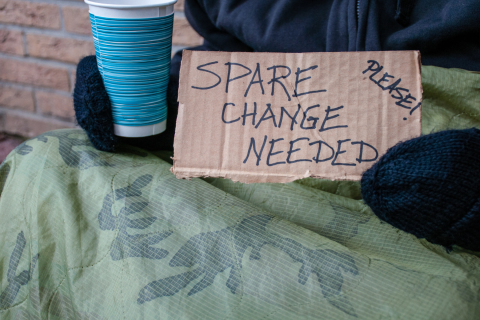 SPARE
CHANGE
NEEDED
PLEASE!